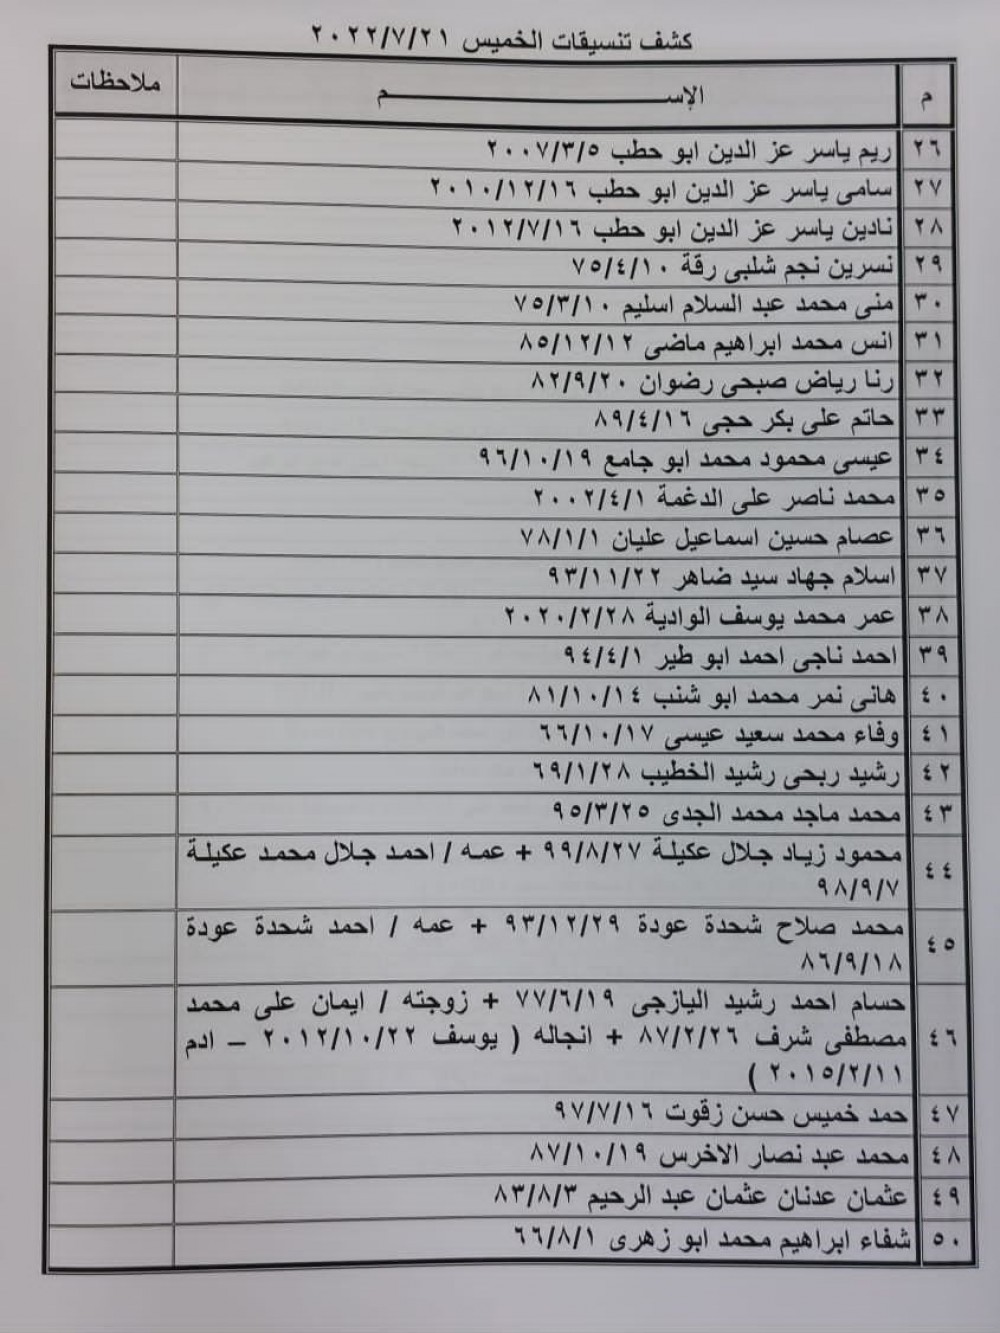 كشف تنسيقات الخميس ٢٠٢٢/٧/٢١
م الإســـــــــم ملاحظات
٢٦ ريم ياسر عز الدين ابو حطب ٢٠٠٧/٣/٥
٢٧ سامى ياسر عز الدين ابو حطب ٢٠١٠/١٢/١٦
٢٨ نادين ياسر عز الدين ابو حطب ٢٠١٢/٧/١٦
٢٩ نسرين نجم شلبى رقة ٧٥/٤/١٠
٣٠ منى محمد عبد السلام اسليم ٧٥/٣/١٠
٣١ انس محمد ابراهيم ماضى ٨٥/١٢/١٢
٣٢ رنا رياض صبحى رضوان ٨٢/٩/٢٠
٣٣ حاتم على بكر حجى ٨٩/٤/١٦
٣٤ عيسى محمود محمد ابو جامع ٩٦/١٠/١٩
٣٥ محمد ناصر على الدغمة ٢٠٠٢/٤/١
٣٦ عصام حسين اسماعيل عليان ٧٨/١/١
٣٧ اسلام جهاد سيد ضاهر ٩٣/١١/٢٢
٣٨ عمر محمد يوسف الوادية ٢٠٢٠/٢/٢٨
٣٩ احمد ناجى احمد ابو طير ٩٤/٤/١
٤٠ هانى نمر محمد ابو شنب ٨١/١٠/١٤
٤١ وفاء محمد سعيد عيسى ٦٦/١٠/١٧
٤٢ رشيد ربحى رشيد الخطيب ٦٩/١/٢٨
٤٣ محمد ماجد محمد الجدى ٩٥/٣/٢٥
٤٤ محمود زياد جلال عكيلة ٩٩/٨/٢٧ + عمه / احمد جلال محمد عكيلة
٩٨/٩/٧
٤٥ محمد صلاح شحدة عودة ٩٣/١٢/٢٩ + عمه / احمد شحدة عودة
٨٦/٩/١٨
حسام احمد رشيد اليازجى ٧٧/٦/١٩ + زوجته / ايمان على محمد
٤٦ مصطفى شرف ٨٧/٢/٢٦ + انجاله ( يوسف ٢٠١٢/١٠/٢٢ – ادم
٢٠١٥/٢/١١ )
٤٧ حمد خميس حسن زقوت ٩٧/٧/١٦
٤٨ محمد عبد نصار الاخرس ٨٧/١٠/١٩
٤٩ عثمان عدنان عثمان عبد الرحيم ٨٣/٨/٣
٥٠ شفاء ابراهيم محمد ابو زهرى ٦٦/٨/١